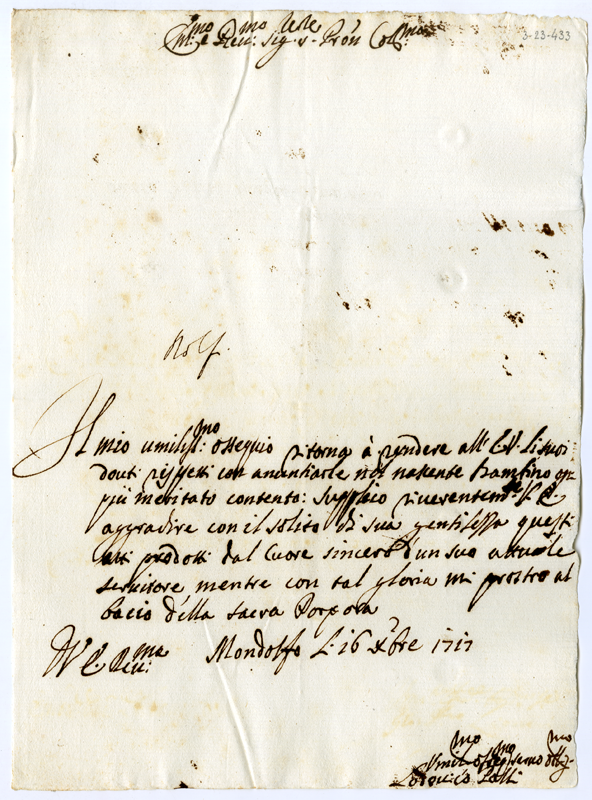 Em.mo e Rev.mo Sig.r Pron Col.mo
3-23-433
Il mio umiliss.mo ossequio ritorna à rendere all' E.V. li suoi
douti rispetti con anuntiarle nel nascente Bambino ogni
più meritato contento: supplico riverentem.te V.E.
aggradire con il solito di sua gentilessa questi
atti prodotti dal Cuore sincero d'un suo attuale
seruitore mentre con tal gloria mi prostro al
bacio della sacra Porpora
V.E. Reu.ma Mondolfo Li 16 Xbre 1717
Umil.mo ossequ.mo